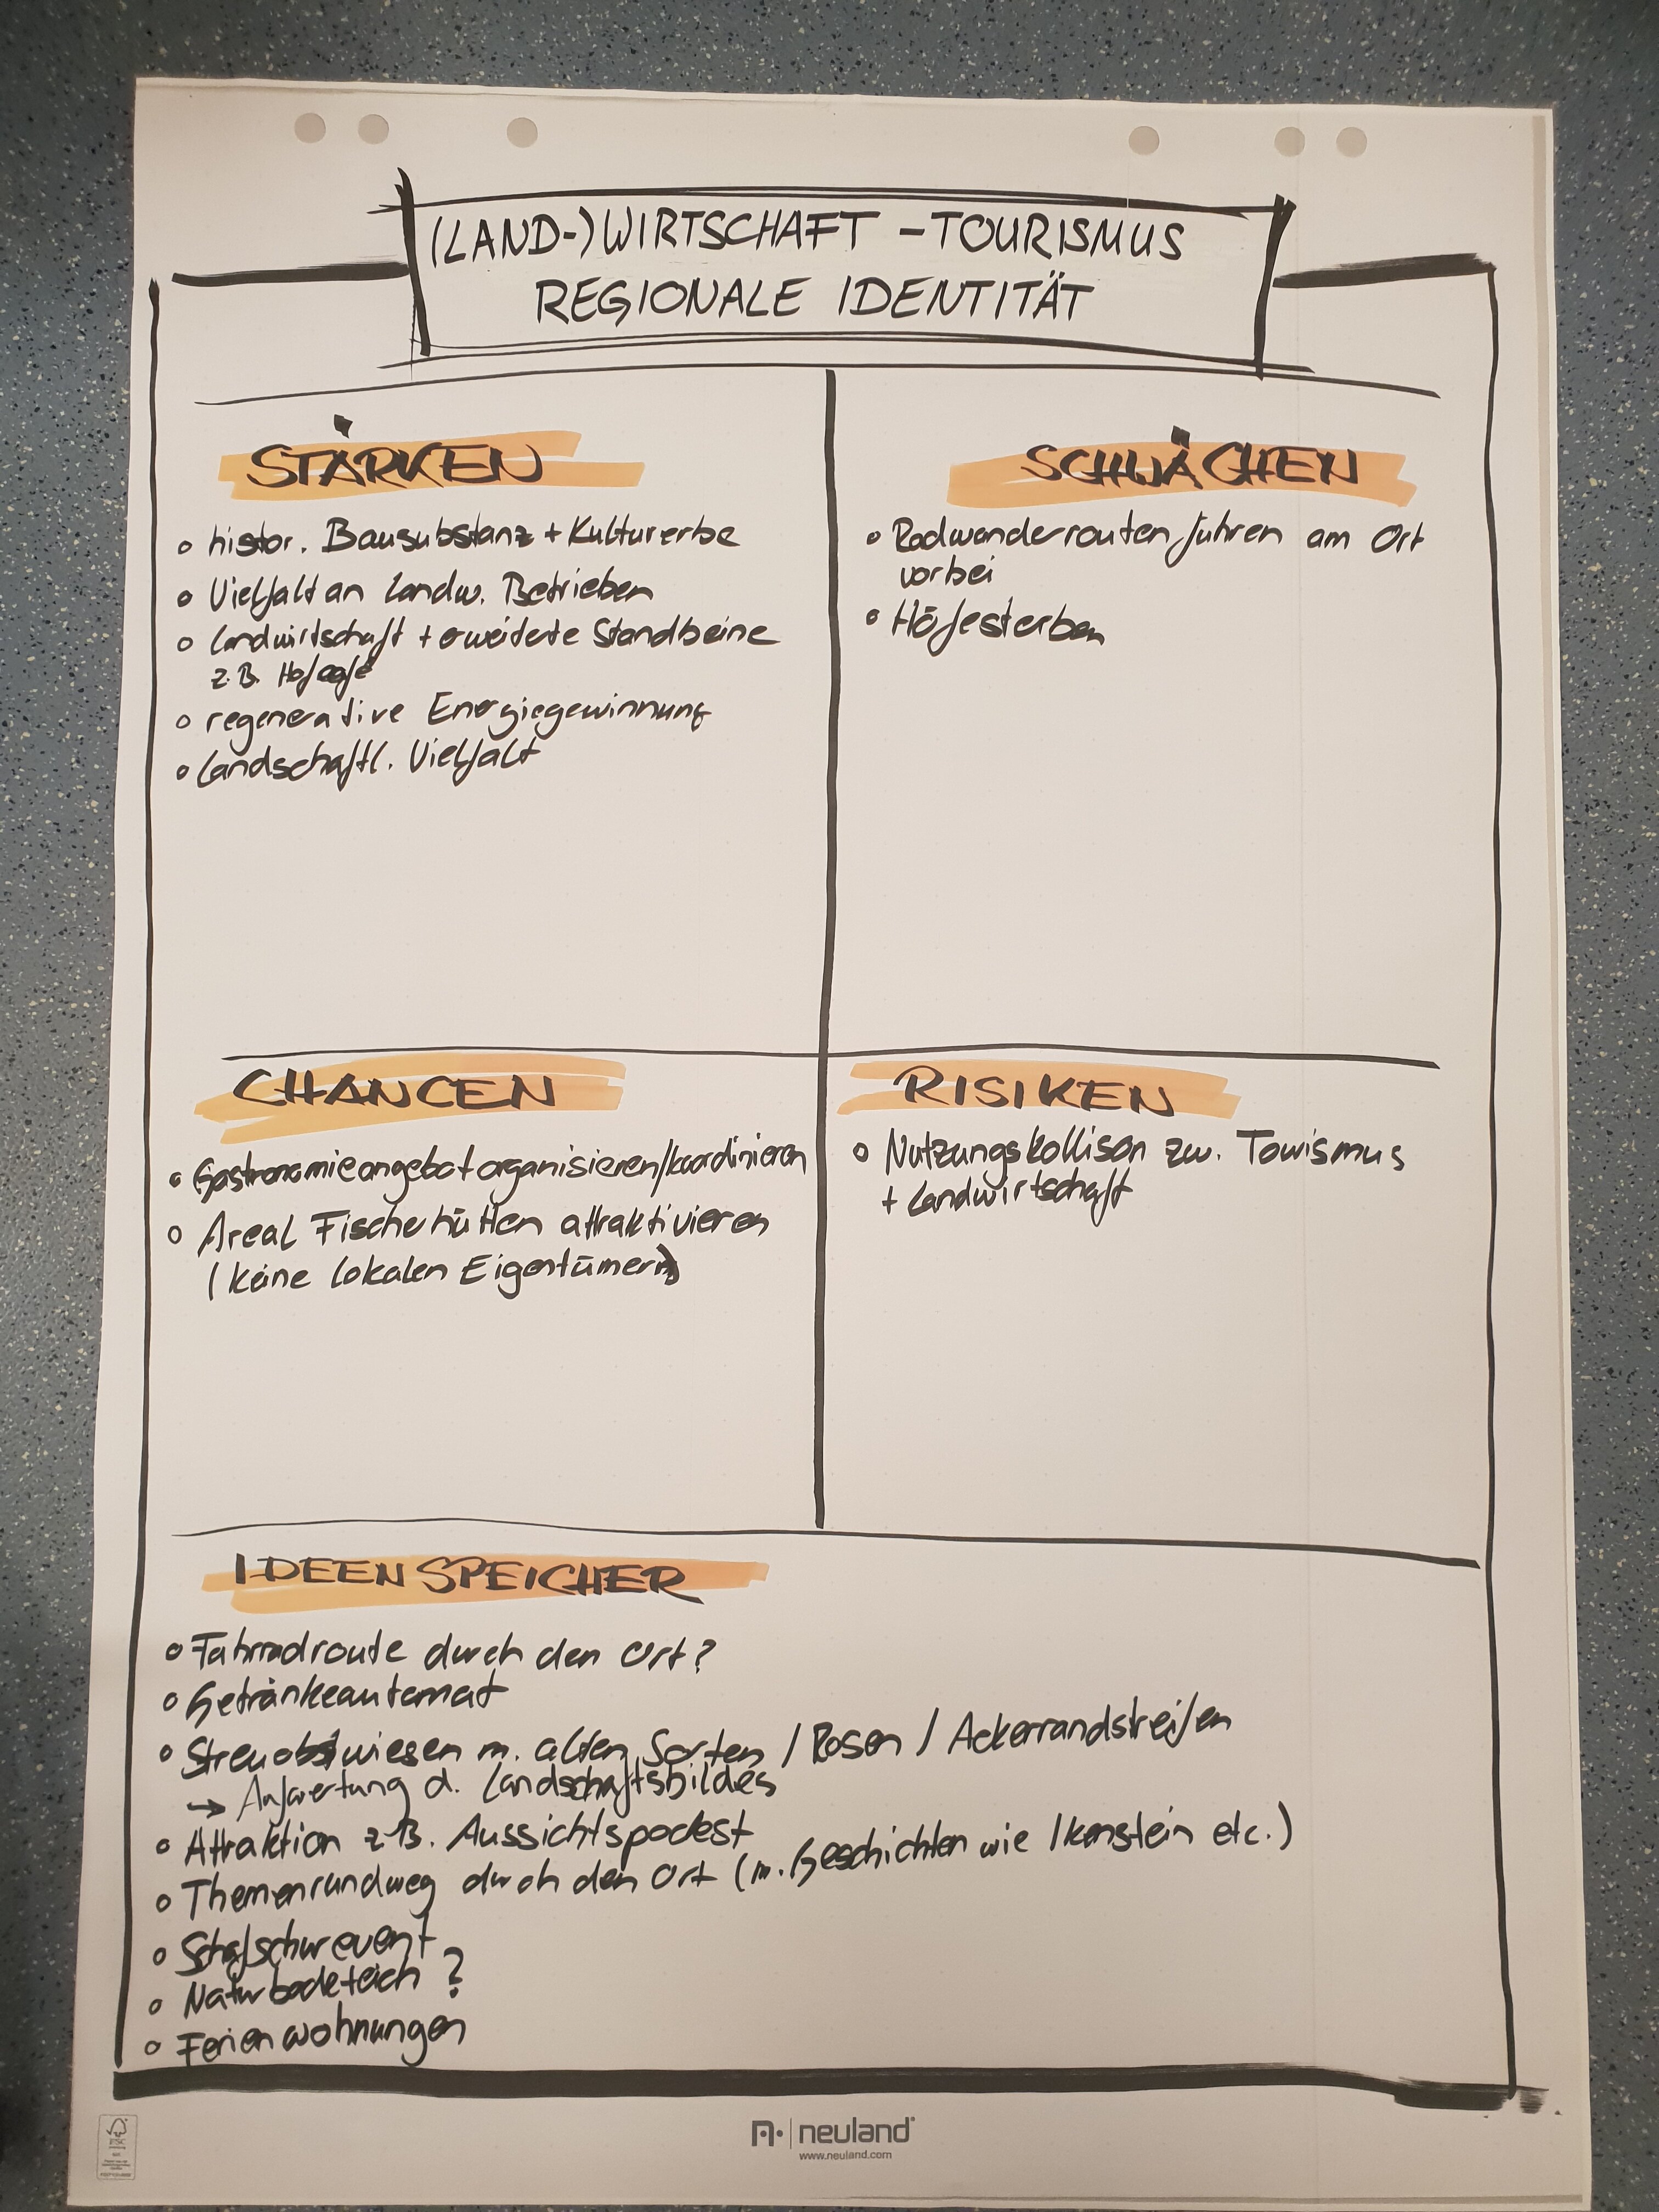 (LAND-)WIRTSCHAFT - TOURISMUS
REGIONALE IDENTITÄT
STÄRKEN
o histor. Bausubstanz + Kulturerbe
o Vielfalt an Landw. Betrieben
o Landwirtschaft + erweiterte Standbeine
z.B. Hofcafé
o regenerative Energiegewinnung
o Landschaftl. Vielfalt
SCHWÄCHEN
o Radwanderrouten führen am Ort
vorbei
o Höfesterben
CHANCEN
o Gastronomieangebot organisieren/koordinieren
o Areal Fischerhütten attraktivieren
(keine lokalen Eigentümer)
RISIKEN
o Nutzungskollison zw. Tourismus
+ Landwirtschaft
IDEENSPEICHER
o Fahrradroute durch den Ort?
o Getränkeautomat
o Streuobstwiesen m. alten Sorten / Rosen / Ackerrandstreifen
→ Aufwertung d. Landschaftsbildes
o Attraktion z.B. Aussichtspodest
o Themenrundweg durch den Ort (m. Geschichten wie Ikenstein etc.)
o Schafschurevent
o Naturbadeteich ?
o Ferienwohnungen
FSC
neuland
www.neuland.com